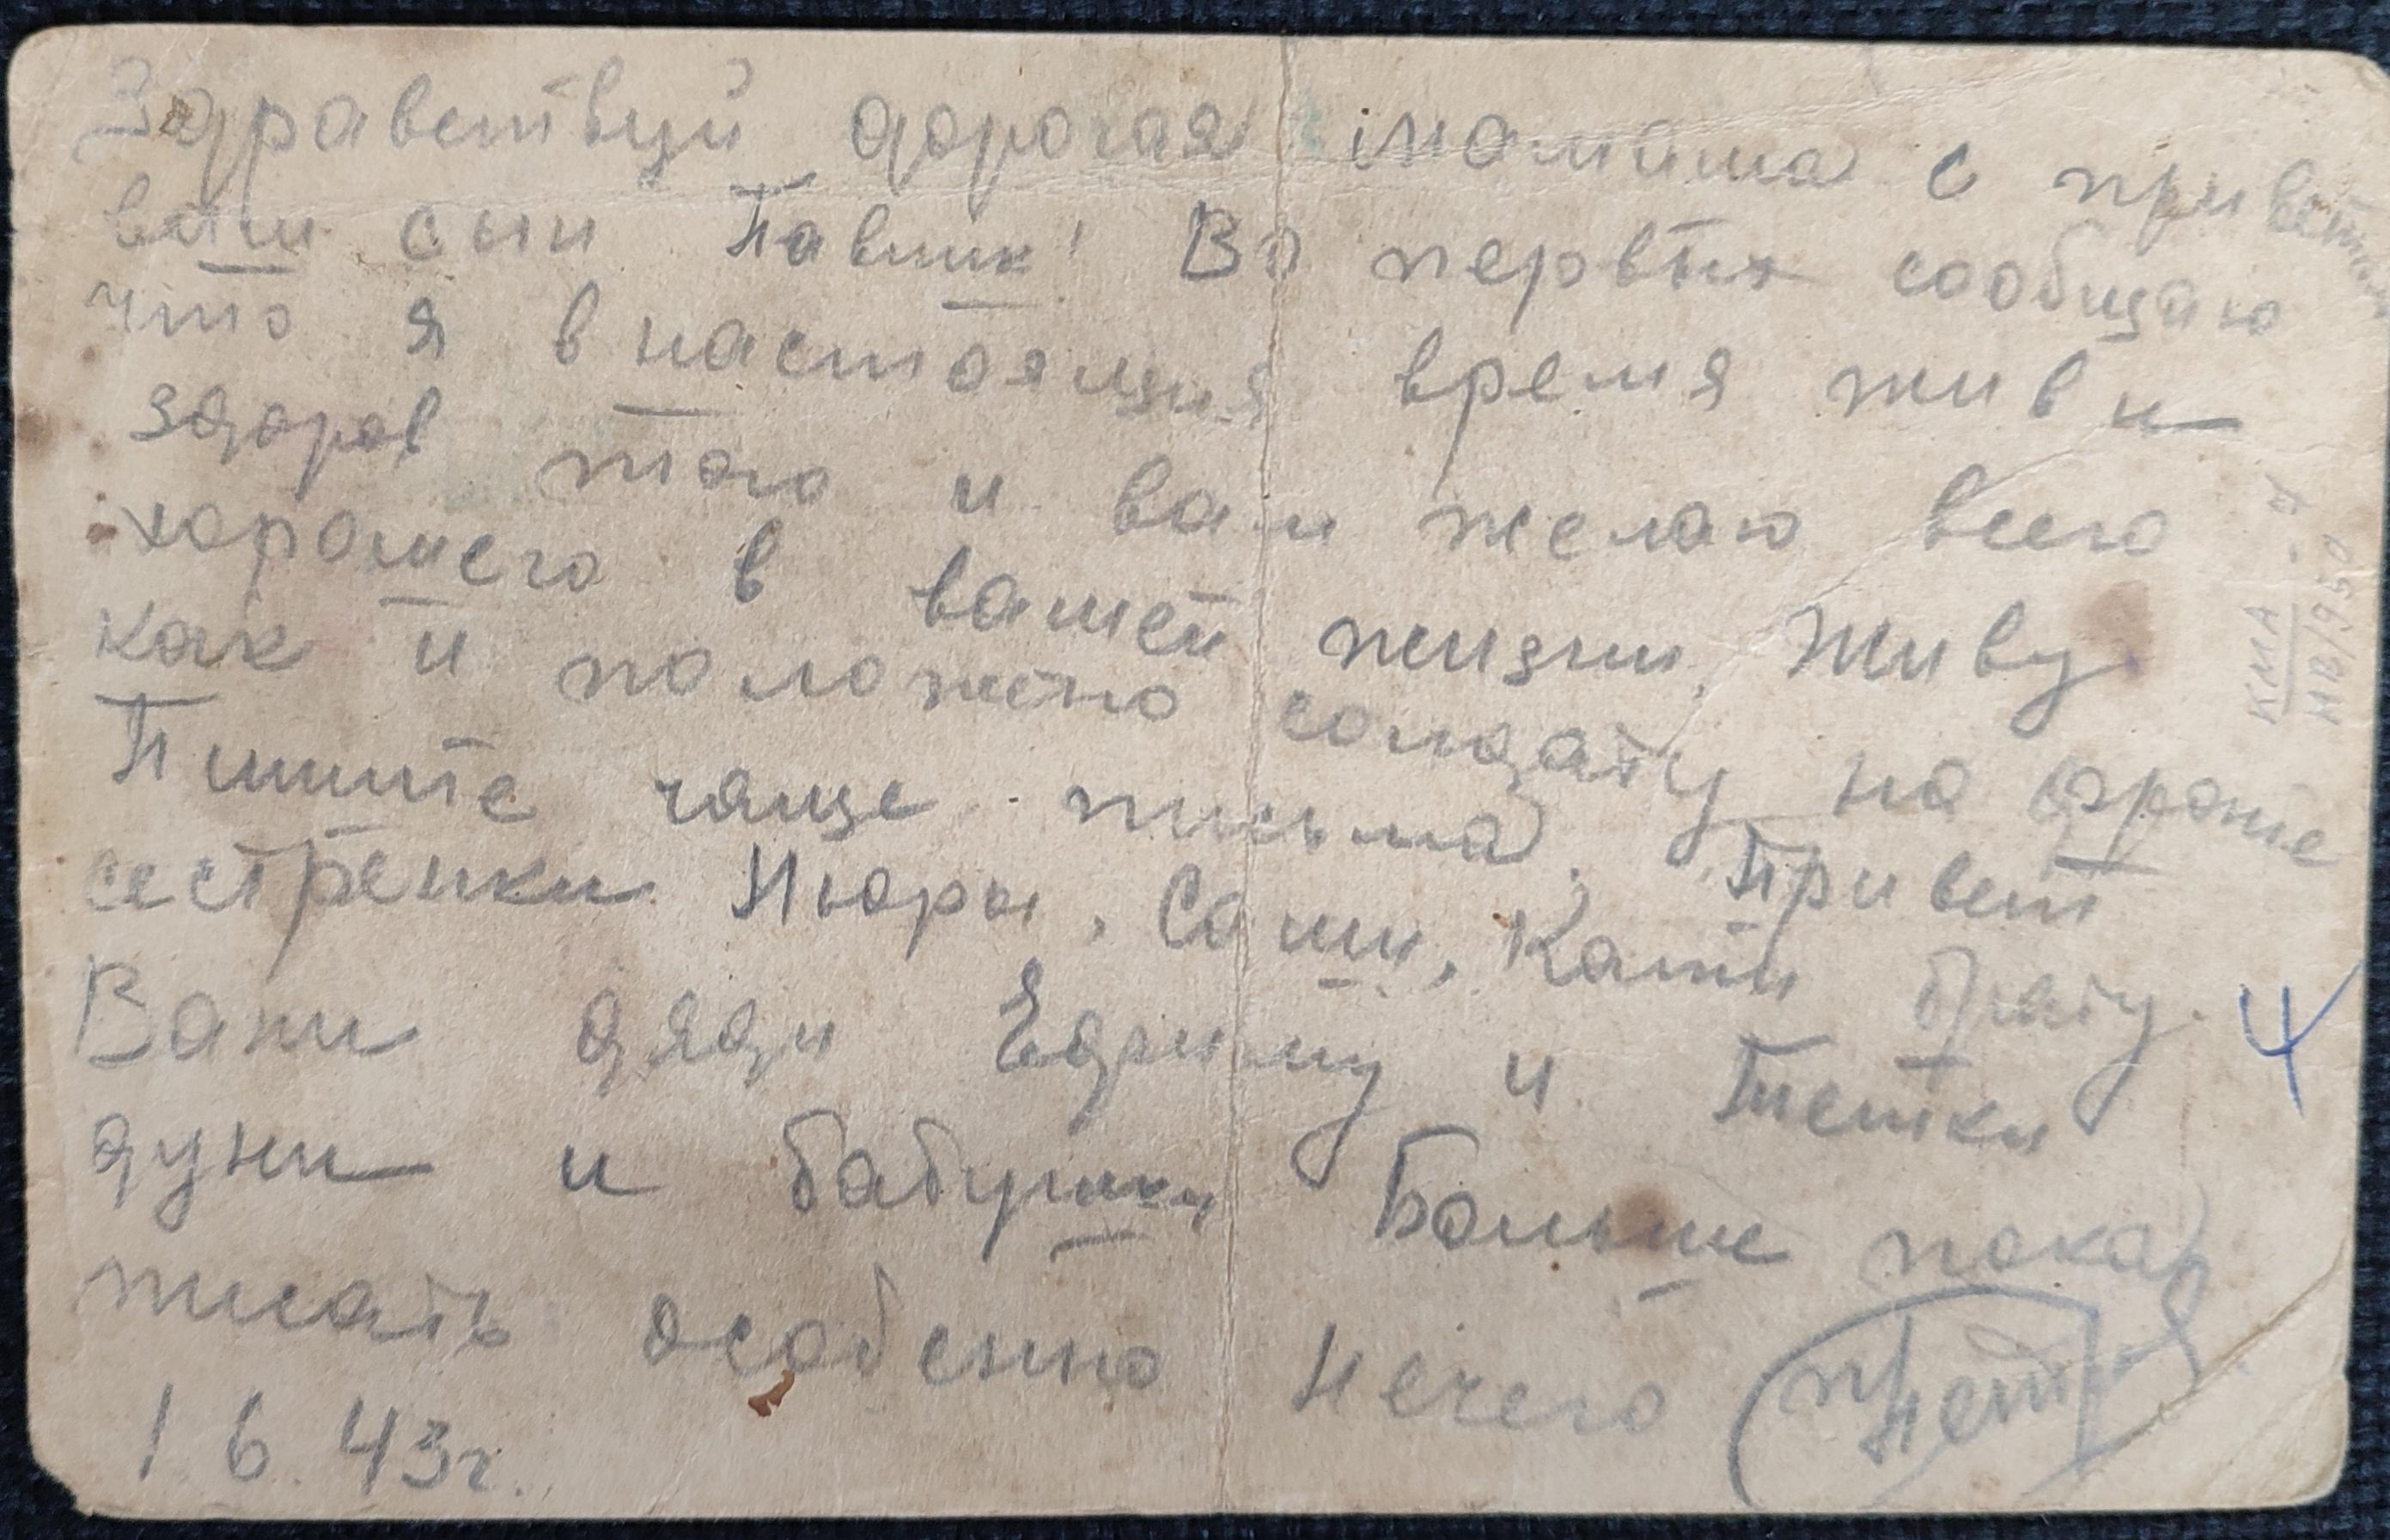 Здравствуй дорогая мамаша с приветом
ваш сын Павлик! Во первых сообщаю
что я в настоящия время жив и
здоров того и вам желаю всего
хорошего в вашей жизни. Живу
как и положено солдату на фронте
Пишите чаще письма. Привет
сестрёнки Нюры, Саши, Кати брату.
Вани дяди Ефриму и тетки
дуни и бабушки Больше пока
писать особенно нечего
1 6. 43г.
КМА - 7
НВ/950
4